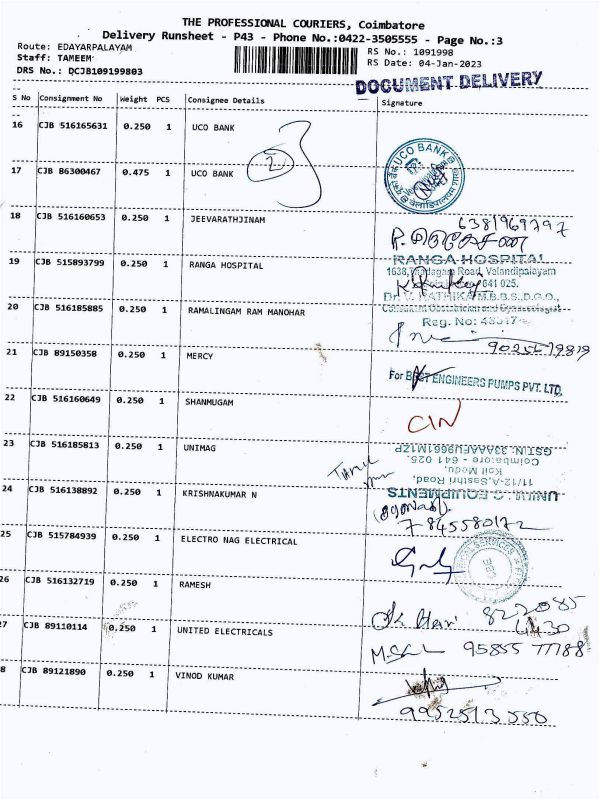 THE PROFESSIONAL COURIERS, Coimbatore
Delivery Runsheet - P43 - Phone No.:0422-3505555 - Page No.:3
Route: EDAYARPALAYAM
RS No.: 1091998
Staff: TAMEEM
RS Date: 04-Jan-2023
DRS No.: DCJB109199803
DOCUMENT DELIVERY
S No Consignment No Weight PCS Consignee Details Signature
16 CJB 516165631 0.250 1 UCO BANK
17 CJB 86300467 0.475 1 UCO BANK
2
UCO BANK
18 CJB 516160653 0.250 1 JEEVARATHJINAM
6381969797
19 CJB 515893799 0.250 1 RANGA HOSPITAL
RANGA HOSPITAL
Road, Velandipalayam
641 025.
Dr. V. RATHIKA M.B.B.S., D.G.O.,
Consultant Obstetrician and Gynaecologist
Reg. No:
20 CJB 516185885 0.250 1 RAMALINGAM RAM MANOHAR
21 CJB 89150358 0.250 1 MERCY
For BEST ENGINEERS PUMPS PVT. LTD.
22 CJB 516160649 0.250 1 SHANMUGAM
23 CJB 516185813 0.250 1 UNIMAG
GSTIN: 33AAAFU9661M1ZP
Coimbatore - 641 025.
Koil Medu,
11/12-A, Sasthri Road,
EQUIPMENTS
24 CJB 516138892 0.250 1 KRISHNAKUMAR N
7845580172
25 CJB 515784939 0.250 1 ELECTRO NAG ELECTRICAL
26 CJB 516132719 0.250 1 RAMESH
822085
6430
27 CJB 89110114 0.250 1 UNITED ELECTRICALS
95855 77788
8 CJB 89121890 0.250 1 VINOD KUMAR
9952513550